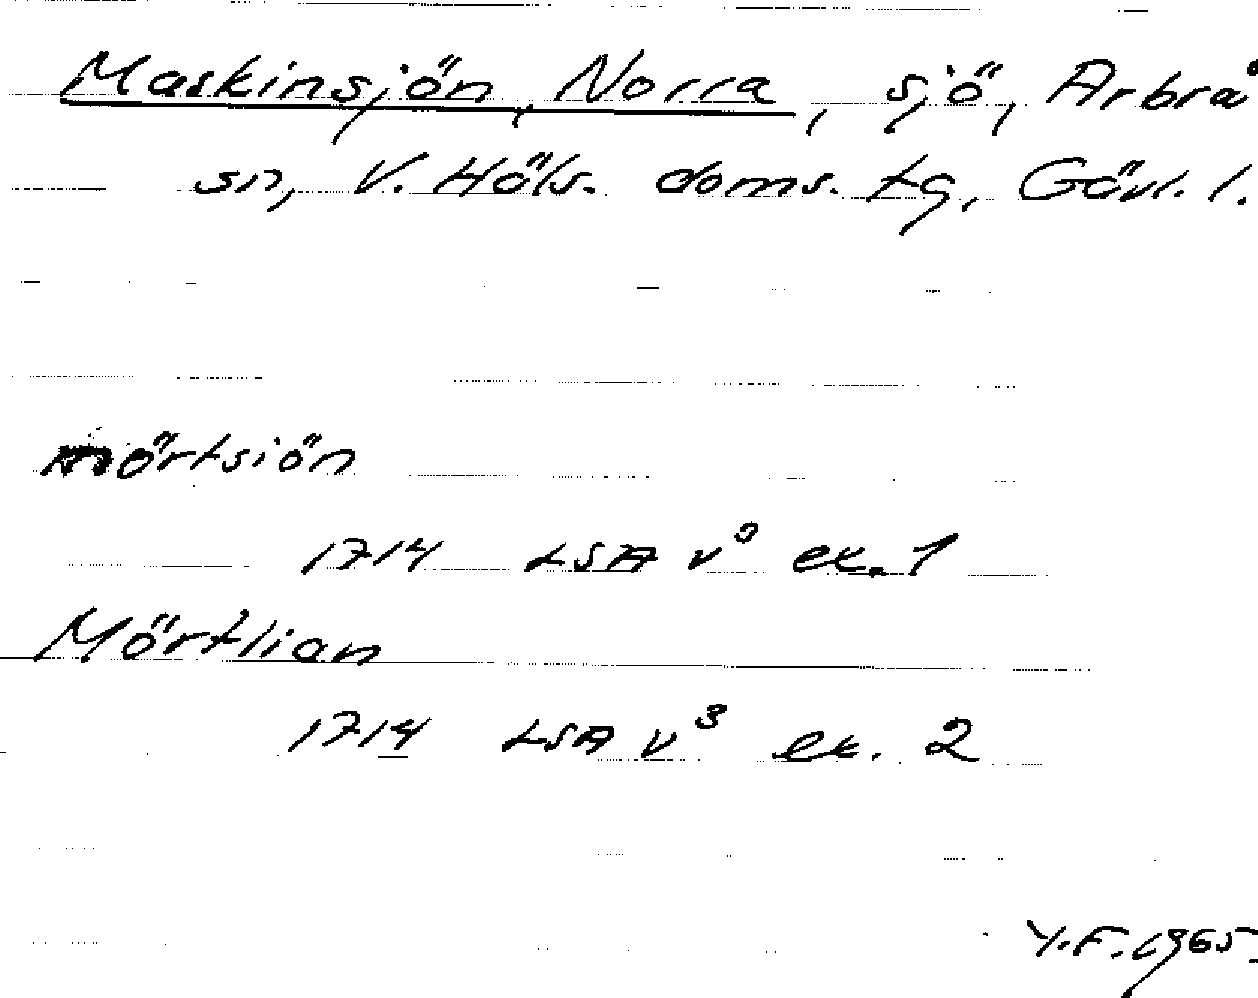 Maskinsjön, Norra, sjö, Arbrå
sn, V. Häls. doms. tg, Gävl. l.
mörtsiön
1714 LSA v³ ex. 1
Mörtlian
1714 LSA v³ ex. 2
Y.F. 1965.